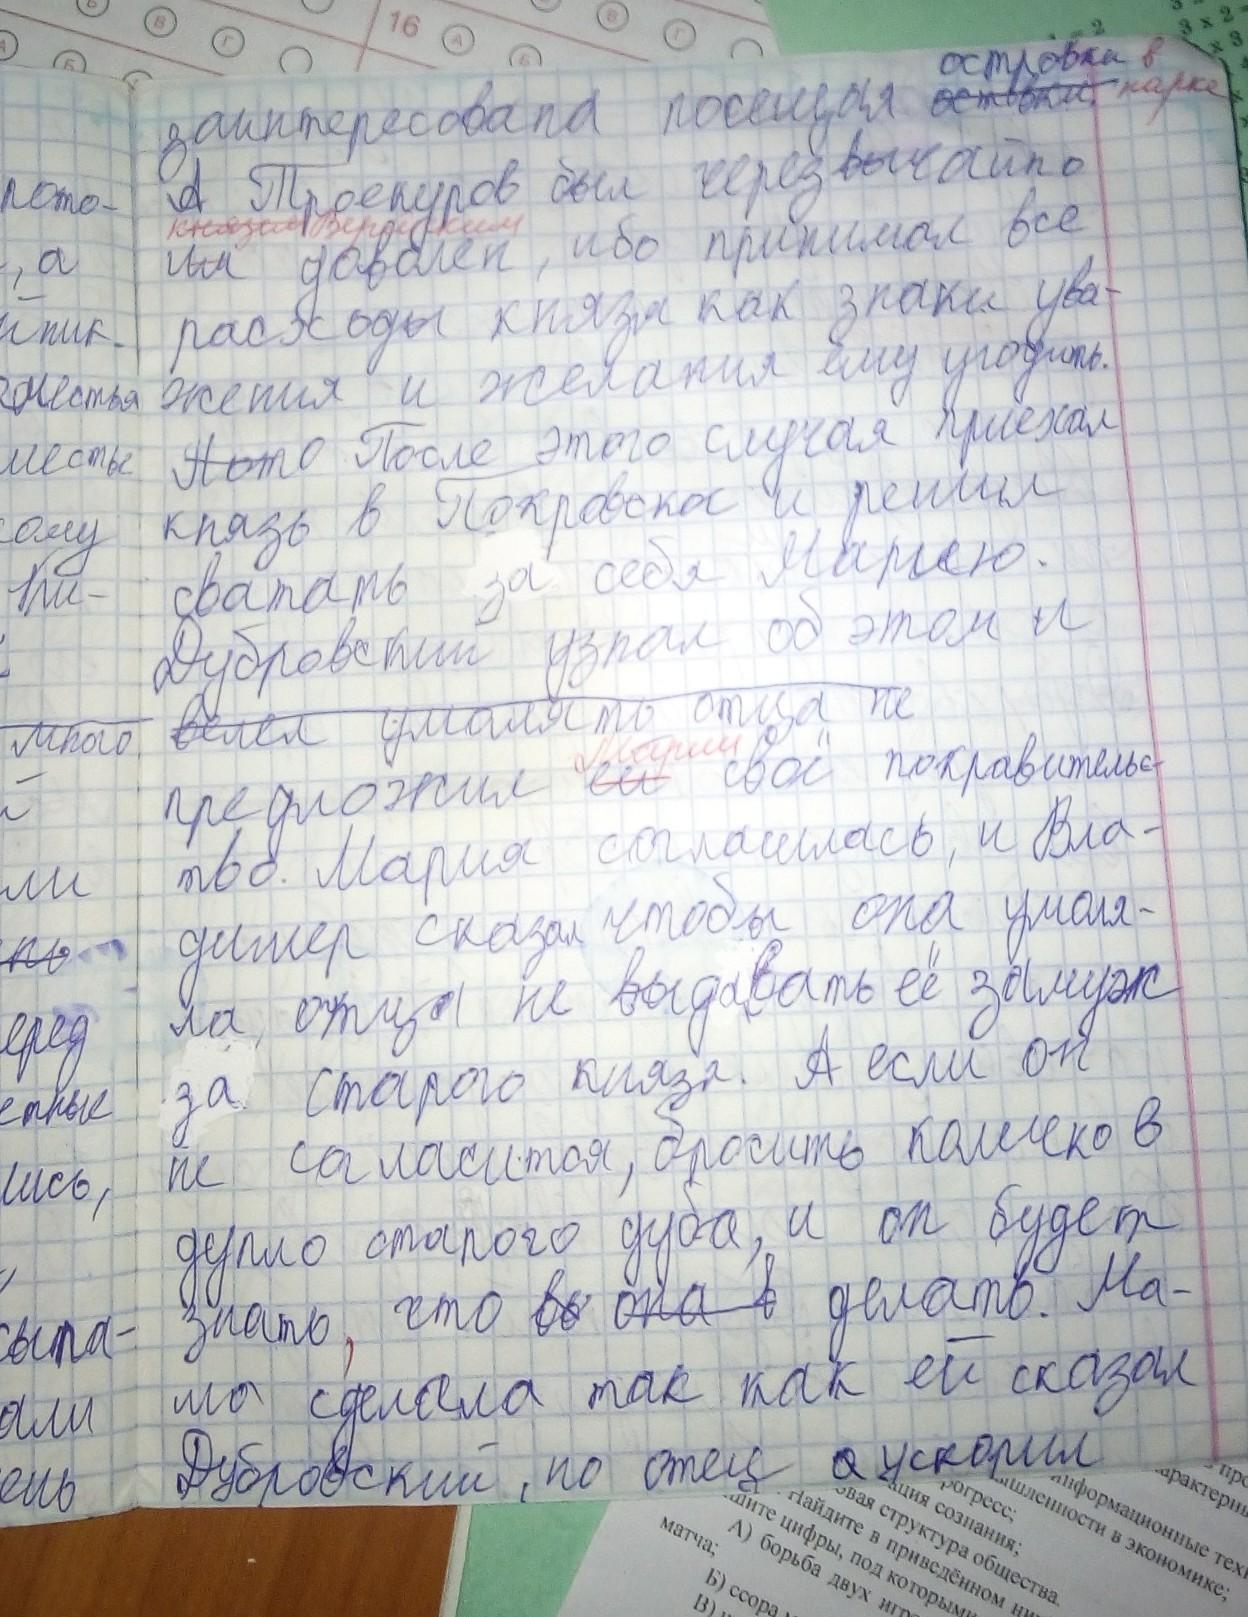 16 А Б В Г
островки в
заинтересована посещая остовки, парке
А Троекуров был черезвычайно
князем Верейским
им доволен, ибо принимал все
расходы князя как знаки ува-
жения и желания ему угодить.
Пото После этого случая приехал
князь в Покровское и решил
сватать за себя Марию.
Дубровский узнал об этом и
велел умолять отца не
Марии
предложил ей своё покравительс-
тво. Мария согласилась, и Вла-
димер сказал чтобы она умоля-
ла, отца не выдавать её замуж
за старого князя. А если он
не согласится, бросить колечко в
дупло старого дуба, и он будет
знать, что вы она в делать. Ма-
ша сделала так как ей сказал
Дубровский, но отец а ускорил
пото-
, а
йник.
местье
сому
Ки-
много
й
ли
еред
етные
лись,
сыпа-
али
ень
прогресс;
ация сознания;
овая структура общества.
Найдите в приведённом
шите цифры, под которыми
А) борьба двух
матча;
Б) ссора
В)
информационные
ышленности в экономике;